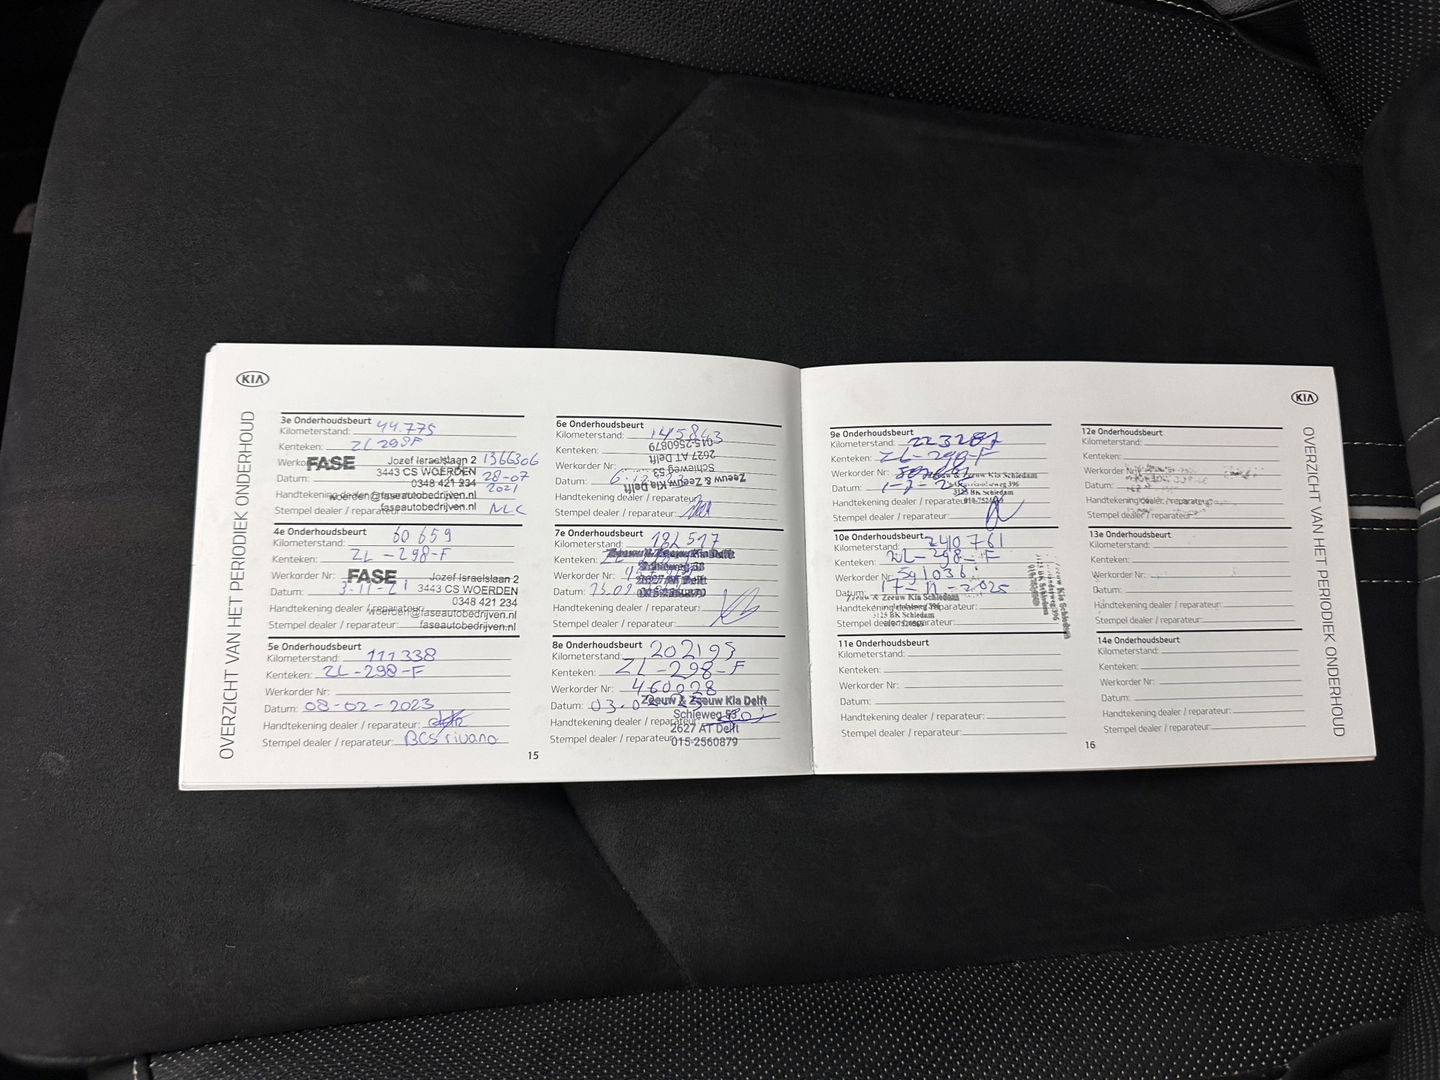 KIA
OVERZICHT VAN HET PERIODIEK ONDERHOUD
3e Onderhoudsbeurt
Kilometerstand: 44.775
Kenteken: ZL 298F
FASE Jozef Israelslaan 2 1366306
3443 CS WOERDEN
Datum: 28-07
0348 421 234 2021
Handtekening dealer
woerden@faseautobedrijven.nl
Stempel dealer / reparateur:
faseautobedrijven.nl
4e Onderhoudsbeurt
Kilometerstand: 60 659
Kenteken: ZL-298-F
Werkorder Nr: FASE Jozef Israelslaan 2
Datum: 3-11-21 3443 CS WOERDEN
0348 421 234
Handtekening dealer / reparateur:
woerden@faseautobedrijven.nl
Stempel dealer / reparateur:
faseautobedrijven.nl
5e Onderhoudsbeurt
Kilometerstand: 111338
Kenteken: ZL-298-F
Werkorder Nr:
Datum: 08-02-2023
Handtekening dealer / reparateur:
Stempel dealer / reparateur:
6e Onderhoudsbeurt
Kilometerstand: 145843
Kenteken: 015-2560879
2627 AT Delft
Werkorder Nr: Schieweg 53
Datum: Zeeuw & Zeeuw Kia Delft
Handtekening dealer / reparateur:
Stempel dealer / reparateur:
7e Onderhoudsbeurt
Kilometerstand: 182517
Kenteken: Zeeuw & Zeeuw Kia Delft
Schieweg 53
Werkorder Nr:
2627 AT Delft
Datum: 015-2560879
Handtekening dealer / reparateur:
Stempel dealer / reparateur:
8e Onderhoudsbeurt
Kilometerstand: 202195
Kenteken: ZL-298-F
Werkorder Nr: 460028
Datum: Zeeuw & Zeeuw Kia Delft
Schieweg 53
Handtekening dealer / reparateur:
2627 AT Delft
Stempel dealer / reparateur: 015-2560879
15
KIA
OVERZICHT VAN HET PERIODIEK ONDERHOUD
9e Onderhoudsbeurt
Kilometerstand: 223287
Kenteken: ZL-298-F
Werkorder Nr: Zeeuw & Zeeuw Kia Schiedam
Datum:
3125 BK Schiedam
Handtekening dealer / reparateur:
Stempel dealer / reparateur:
10e Onderhoudsbeurt
Kilometerstand: 240761
Kenteken: ZL-298-F
Werkorder Nr: 591036
Datum: 17-11-2025
Zeeuw & Zeeuw Kia Schiedam
Handtekening dealer / reparateur:
3125 BK Schiedam
Stempel dealer / reparateur:
11e Onderhoudsbeurt
Kilometerstand:
Kenteken:
Werkorder Nr:
Datum:
Handtekening dealer / reparateur:
Stempel dealer / reparateur:
12e Onderhoudsbeurt
Kilometerstand:
Kenteken:
Werkorder Nr:
Datum:
Handtekening dealer / reparateur:
Stempel dealer / reparateur:
13e Onderhoudsbeurt
Kilometerstand:
Kenteken:
Werkorder Nr:
Datum:
Handtekening dealer / reparateur:
Stempel dealer / reparateur:
14e Onderhoudsbeurt
Kilometerstand:
Kenteken:
Werkorder Nr:
Datum:
Handtekening dealer / reparateur:
Stempel dealer / reparateur:
16